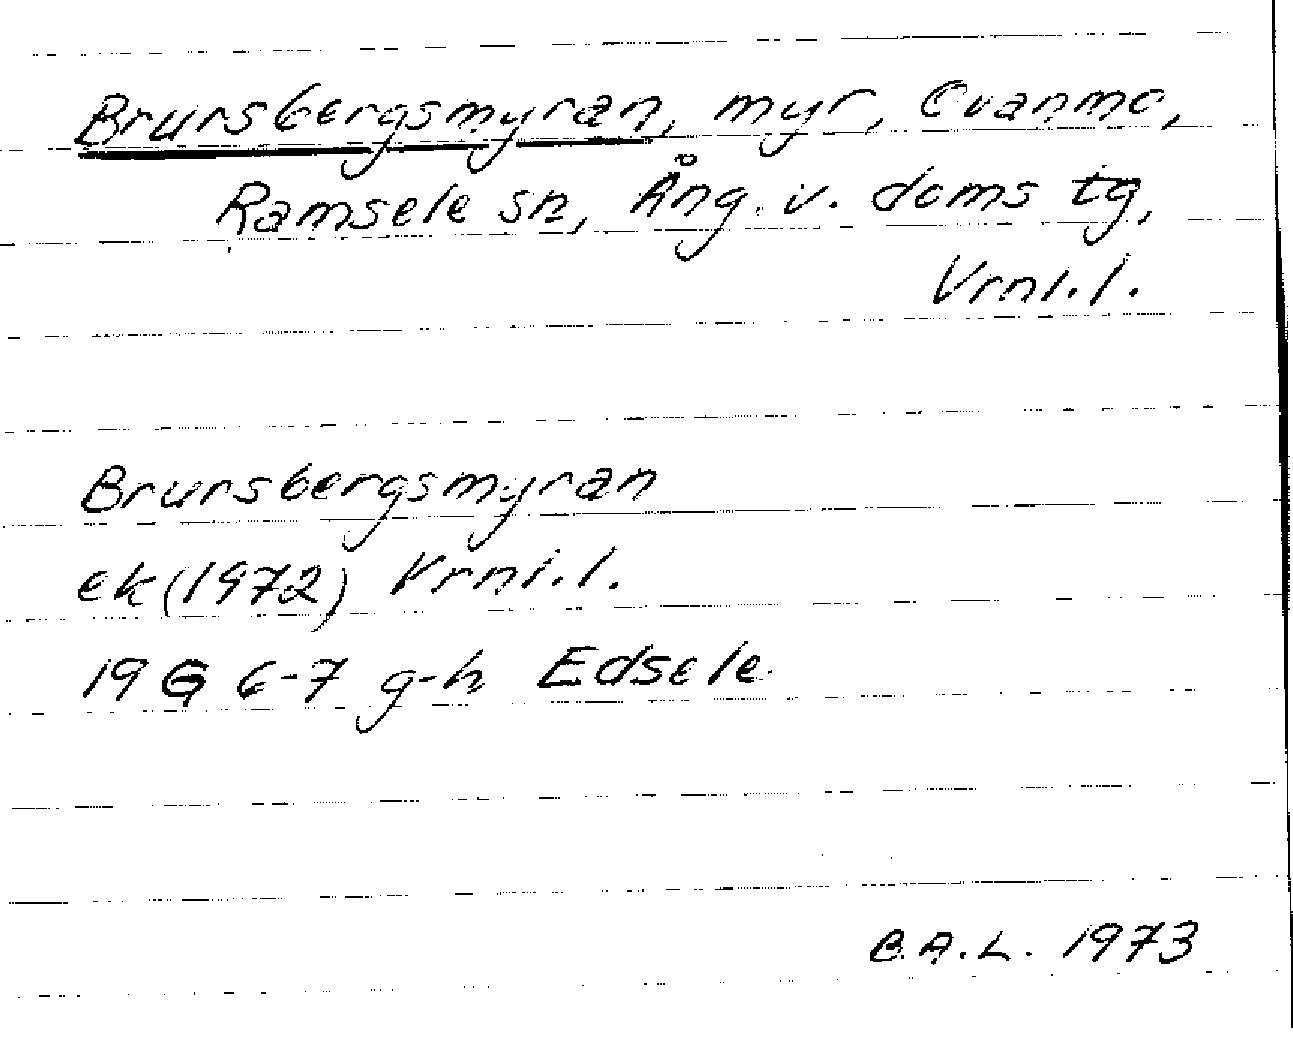 Brursbergsmyran, myr, Ovanmo,
Ramsele sn, Ång. v. doms tg,
Vrnl.l.
Brursbergsmyran
ek (1972) Vrnl.l.
19 G 6-7 g-h Edsele
B.A.L. 1973